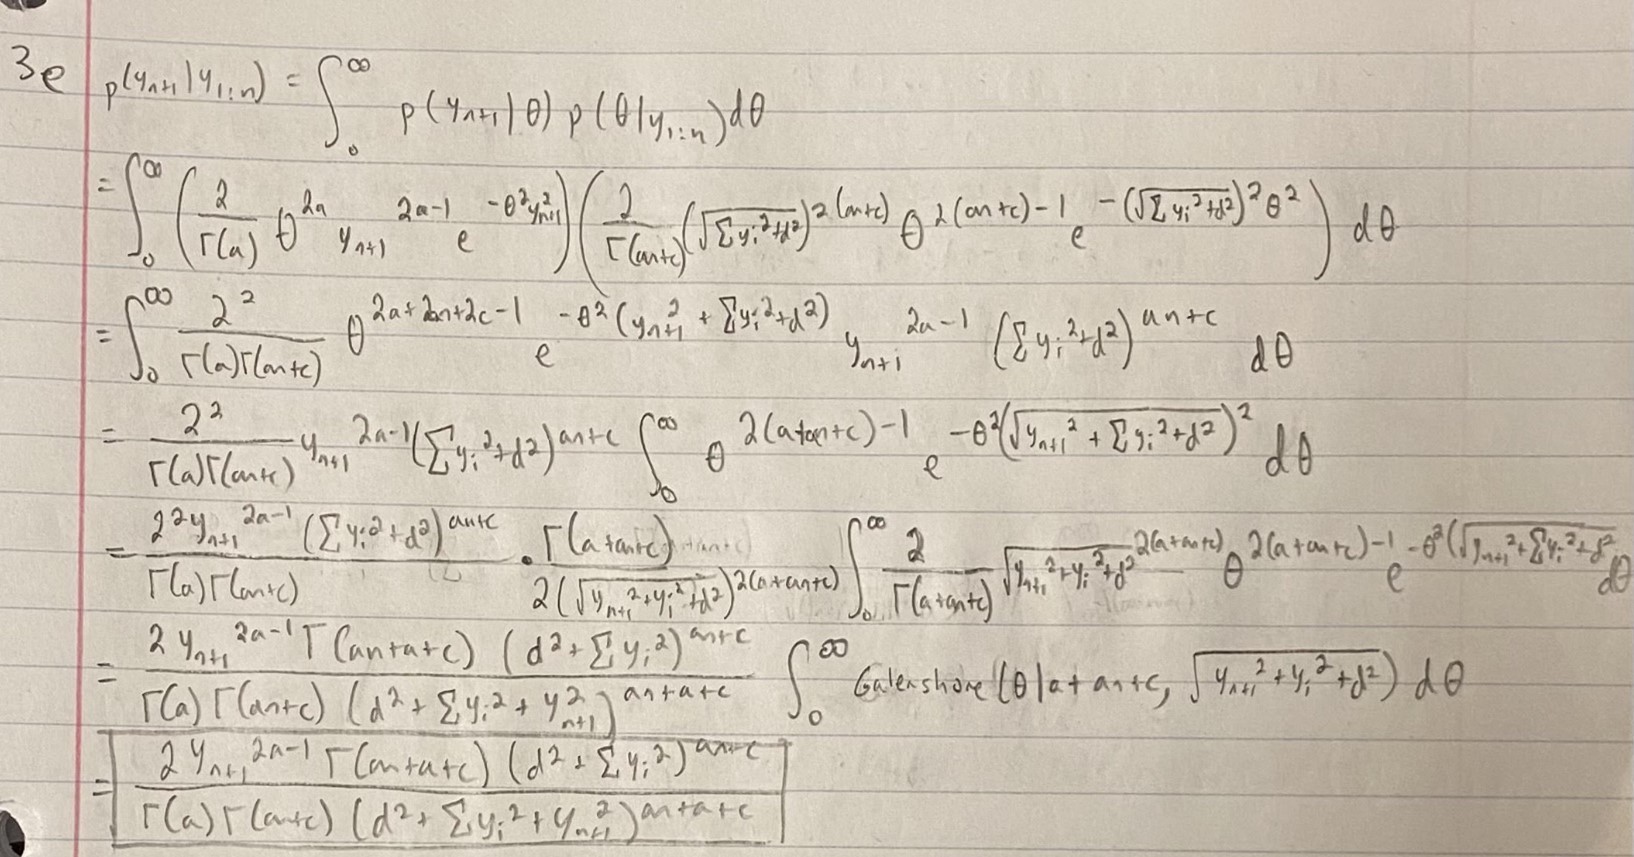 3e p(y_{n+1}|y_{1:n}) = ∫_0^∞ p(y_{n+1}|θ) p(θ|y_{1:n}) dθ
= ∫_0^∞ (2/Γ(a) θ^{2a} y_{n+1}^{2a-1} e^{-θ²y_{n+1}²}) (2/Γ(an+c) (√(Σy_i²+d²))^{2(an+c)} θ^{2(an+c)-1} e^{-(√(Σy_i²+d²))²θ²}) dθ
= ∫_0^∞ 2²/(Γ(a)Γ(an+c)) θ^{2a+2an+2c-1} e^{-θ²(y_{n+1}²+Σy_i²+d²)} y_{n+1}^{2a-1} (Σy_i²+d²)^{an+c} dθ
= 2²/(Γ(a)Γ(an+c)) y_{n+1}^{2a-1} (Σy_i²+d²)^{an+c} ∫_0^∞ θ^{2(a+an+c)-1} e^{-θ²(√(y_{n+1}²+Σy_i²+d²))²} dθ
= 2²y_{n+1}^{2a-1} (Σy_i²+d²)^{an+c}/(Γ(a)Γ(an+c)) · Γ(a+an+c)/(2(√(y_{n+1}²+y_i²+d²))^{2(a+an+c)}) ∫_0^∞ 2/Γ(a+an+c) √(y_{n+1}²+y_i²+d²)^{2(a+an+c)} θ^{2(a+an+c)-1} e^{-θ²(√(y_{n+1}²+Σy_i²+d²} dθ
= 2y_{n+1}^{2a-1} Γ(an+a+c) (d²+Σy_i²)^{an+c}/(Γ(a)Γ(an+c) (d²+Σy_i²+y_{n+1}²)^{an+a+c}) ∫_0^∞ Galenshore(θ|a+an+c, √(y_{n+1}²+y_i²+d²)) dθ
= 2y_{n+1}^{2a-1} Γ(an+a+c) (d²+Σy_i²)^{an+c}/(Γ(a)Γ(an+c) (d²+Σy_i²+y_{n+1}²)^{an+a+c})